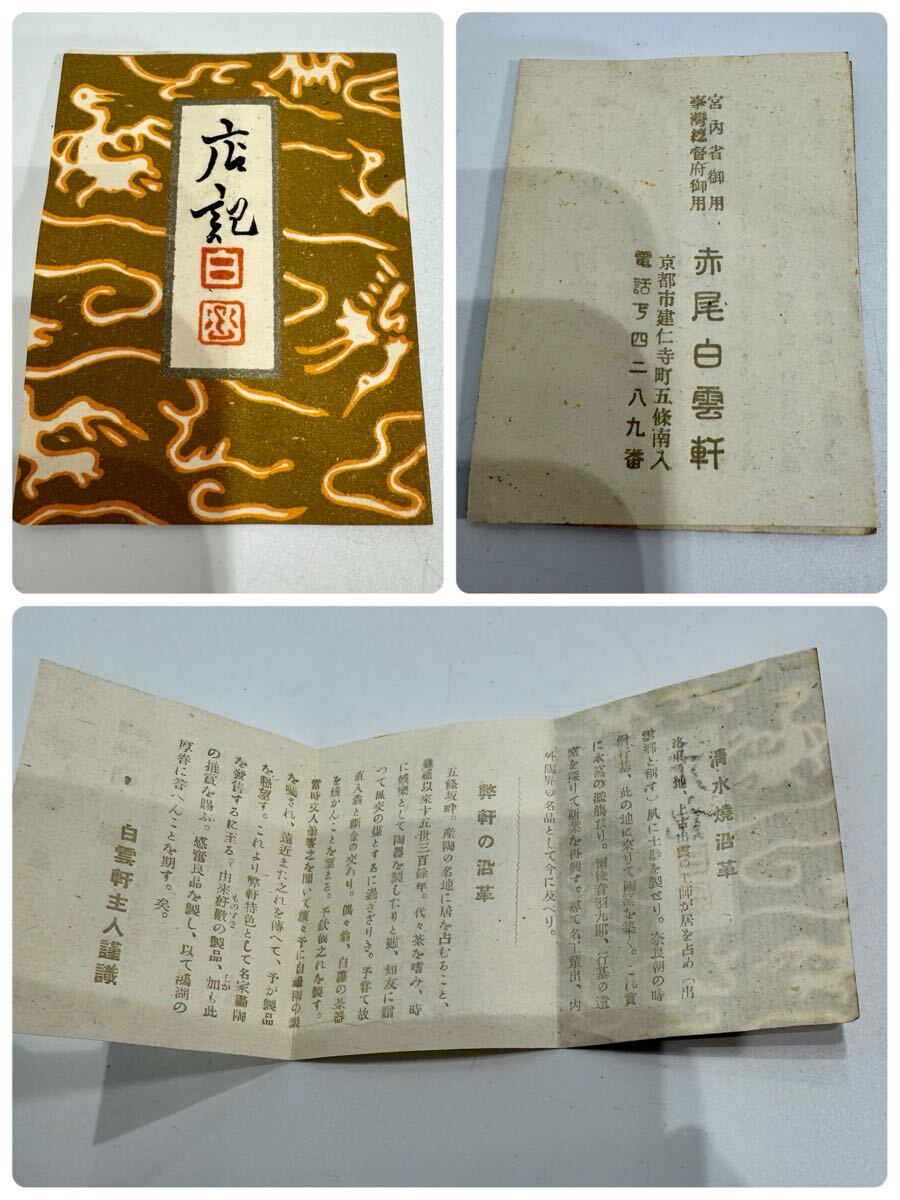 店記
宮内省御用
臺灣總督府御用
赤尾白雲軒
京都市建仁寺町五條南入
電話下四二八九番
清水燒沿革
洛東の地、上古出雲の土師が居を占め(出
雲郷と稱す)夙に土器を製せり。奈良朝の時
僧行基、此の地に來りて陶窯を築く。これ實
に本窯の濫觴たり。爾後音羽九郎、行基の遺
窯を探りて新業を再興す。尋て名工輩出、內
外陶界の名品として今に及べり。
弊軒の沿革
五條坂畔。產陶の名地に居を占むること、
以來十五世三百餘年。代々茶を嗜み、時
に娛樂として陶器を製したりと雖、知友に贈
つて風交の媒とするに過ぎざりき。予甞て故
直入翁と斷金の交あり。偶々翁、自畵の茶器
を燒かんことを望まる。予欣然之れを製す。
當時文人墨客之を聞いて頻々予に自畵陶の製
を囑され、遠近また之れを傳へて、予が製品
を懇望す。これより弊軒特色として名家畵陶
を發售するに至る。由來好數の製品、加も此
ものずき
しか
の推賞を賜ふ。感奮良品を製し、以て鴻湖の
厚眷に答へんことを期す。矣。
白雲軒主人謹識